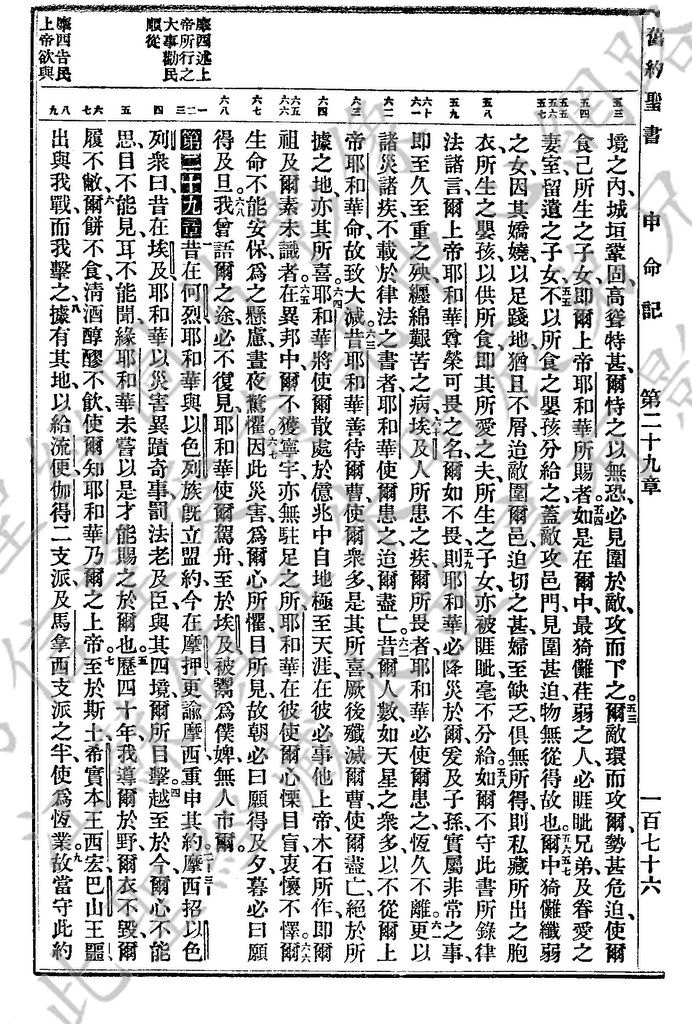 舊約聖書　申命記　第二十九章　一百七十六
境之內、城垣鞏固高聳特甚、爾恃之以無恐、必見圍於敵、攻而下之。五三爾敵環而攻爾、勢甚危迫、使爾
食己所生之子女、即爾上帝耶和華所賜者。五四如是在爾中最猗儺荏弱之人、必睚眦兄弟、及眷愛之
妻、室留遺之子女、五五不以所食之嬰孩分給之、蓋敵攻邑門、見圍甚迫、物無從得故也。五六五七爾中猗儺纖弱
之女、因其嬌嬈、以足踐地、猶且不屑、迨敵圍爾邑、迫切之甚、婦至缺乏、俱無所得、則私藏所出之胞
衣、所生之嬰孩、以供所食、即其所愛之夫、所生之子女、亦被睚眦、毫不分給。五八如爾不守此書所錄律
法諸言、爾上帝耶和華尊榮可畏之名、爾如不畏、五九則耶和華必降災於爾、爰及子孫、實屬非常之事、
即至久至重之殃、纏綿艱苦之病、六十埃及人所患之疾、爾所畏者、耶和華必使爾患之、恆久不離、六一更以
諸災諸疾、不載於律法之書者、耶和華使爾患之、迨爾盡亡、六二昔爾人數如天星之衆多、以不從爾上
帝耶和華命、故致大減。六三昔耶和華善待爾曹、使爾衆多、是其所喜、厥後殲滅爾曹、使爾盡亡、絕於所
據之地、亦其所喜。六四耶和華將使爾散處於億兆中、自地極至天涯、在彼必事他上帝、木石所作、即爾
祖及爾素未識者。六五在異邦中、爾不獲寧宇、亦無駐足之所、耶和華在彼使爾心慄目盲、衷懷不懌。六六爾
生命不能安保、爲之懸慮、晝夜驚懼、六七因此災害、爲爾心所懼、目所見、故朝必曰、願得及夕、暮必曰、願
得及旦。六八我曾語爾之途、必不復見、耶和華使爾駕舟至於埃及、被鬻爲僕婢、無人市爾。
第二十九章　一昔在何烈、耶和華與以色列族旣立盟約、今在摩押、更諭摩西重申其約。二三摩西招以色
列衆曰、昔在埃及、耶和華以災害異蹟奇事罰法老及臣、與其四境、爾所目擊。四越至於今、爾心不能
思、目不能見、耳不能聞、緣耶和華未嘗以是才能賜之於爾也。五歷四十年、我導爾於野、爾衣不毀、爾
履不敝、六爾餅不食、淸酒醇醪不飮、使爾知耶和華乃爾之上帝。七至於斯土、希實本王西宏、巴山王噩
出與我戰、而我擊之、八據有其地、以給流便伽得二支派、及馬拿西支派之半、使爲恆業。九故當守此約、
摩西述上
帝所行之
大事勸民
順從
摩西告民
上帝欲與
五三
五四
五五
五六
五七
五八
五九
六十
六一
六二
六三
六四
六五
六六
六七
六八
一
二
三
四
五
六
七
八
九